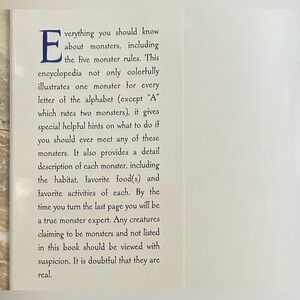 Everything you should know
about monsters, including
the five monster rules. This
encyclopedia not only colorfully
illustrates one monster for every
letter of the alphabet (except "A"
which rates two monsters), it gives
special helpful hints on what to do if
you should ever meet any of these
monsters. It also provides a detail
description of each monster, including
the habitat, favorite food(s) and
favorite activities of each. By the
time you turn the last page you will be
a true monster expert. Any creatures
claiming to be monsters and not listed
in this book should be viewed with
suspicion. It is doubtful that they are
real.